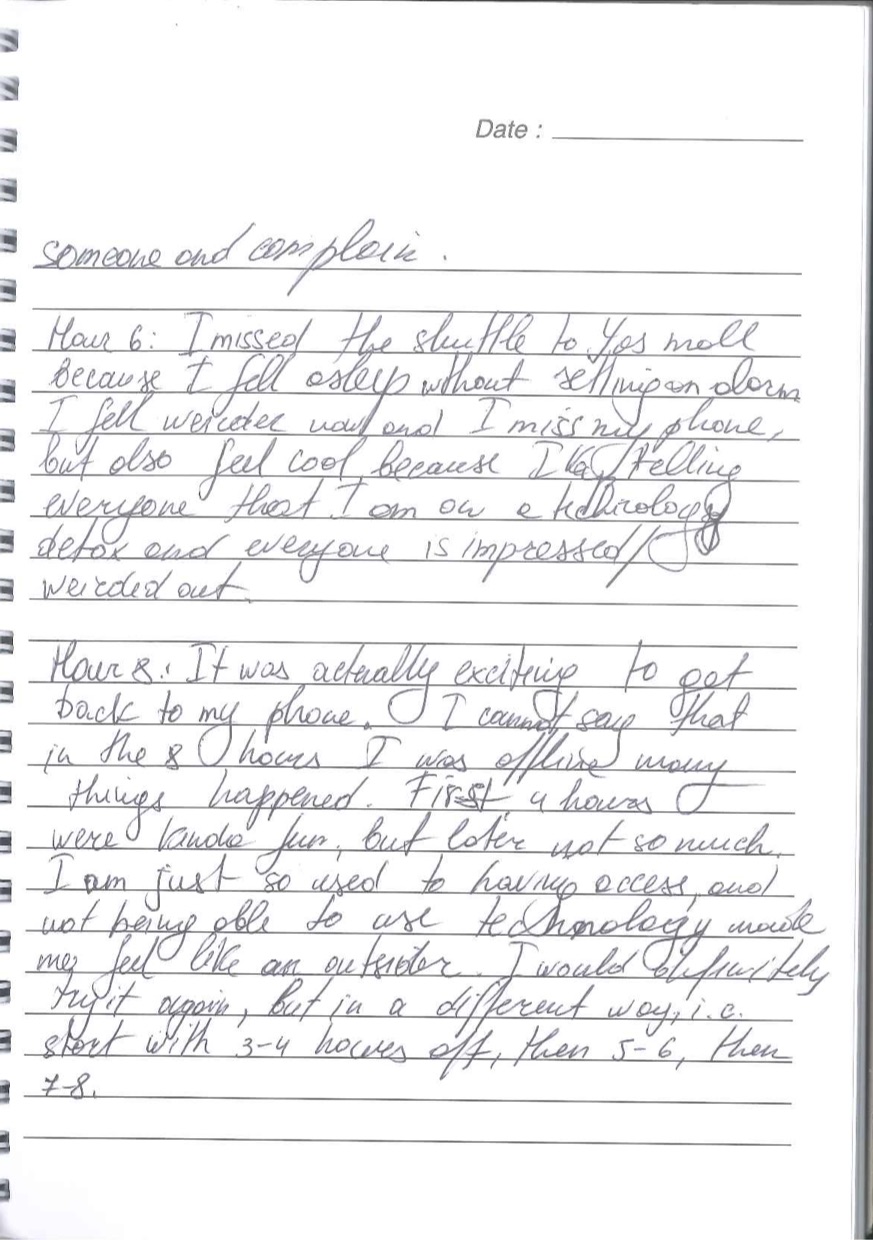 Date :
someone and complain.
Hour 6: I missed the shuttle to Yas mall
because I fell asleep without setting an alarm
I fell weirder now and I miss my phone,
but also feel cool because I telling
everyone that I am on a technology
detox and everyone is impressed/
weirded out.
Hour 8: It was actually exciting to get
back to my phone. I cannot say that
in the 8 hours I was offline many
things happened. First 4 hours
were kinda fun, but later not so much.
I am just so used to having access, and
not being able to use technology made
me feel like an outsider. I would definitely
try it again, but in a different way, i.e.
start with 3-4 hours off, then 5-6, then
7-8.